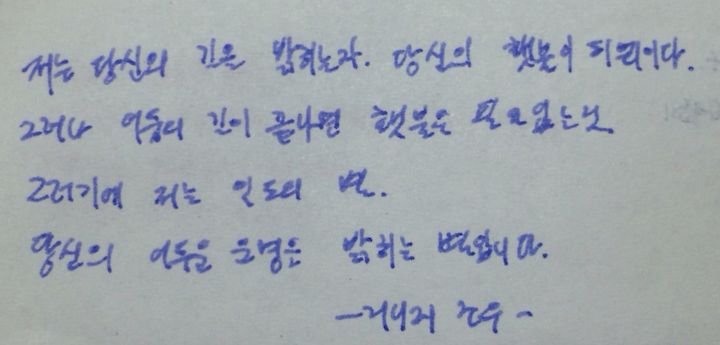 저는 당신의 길을 밝히는자. 당신의 횃불이 되리이다.
그러나 어둠의 길이 끝나면 횃불은 필요없는것
그러기에 저는 인도의 별.
당신의 어두운 운명은 밝히는 별입니다.